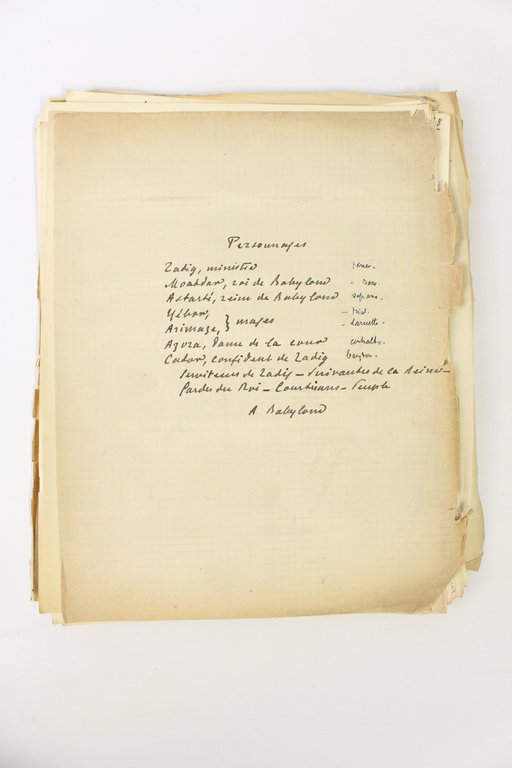 Personnages
Zadig, ministre ténor.
Moabdar, roi de Babylone - Bar.
Astarté, reine de Babylone soprano.
Yébor, } mages - trial.
Arimaze, - Laruette.
Azora, Dame de la cour contralto.
Cador, confident de Zadig baryton.
Serviteurs de Zadig - Suivantes de la Reine -
Gardes du Roi - Courtisans - Peuple
A Babylone
8